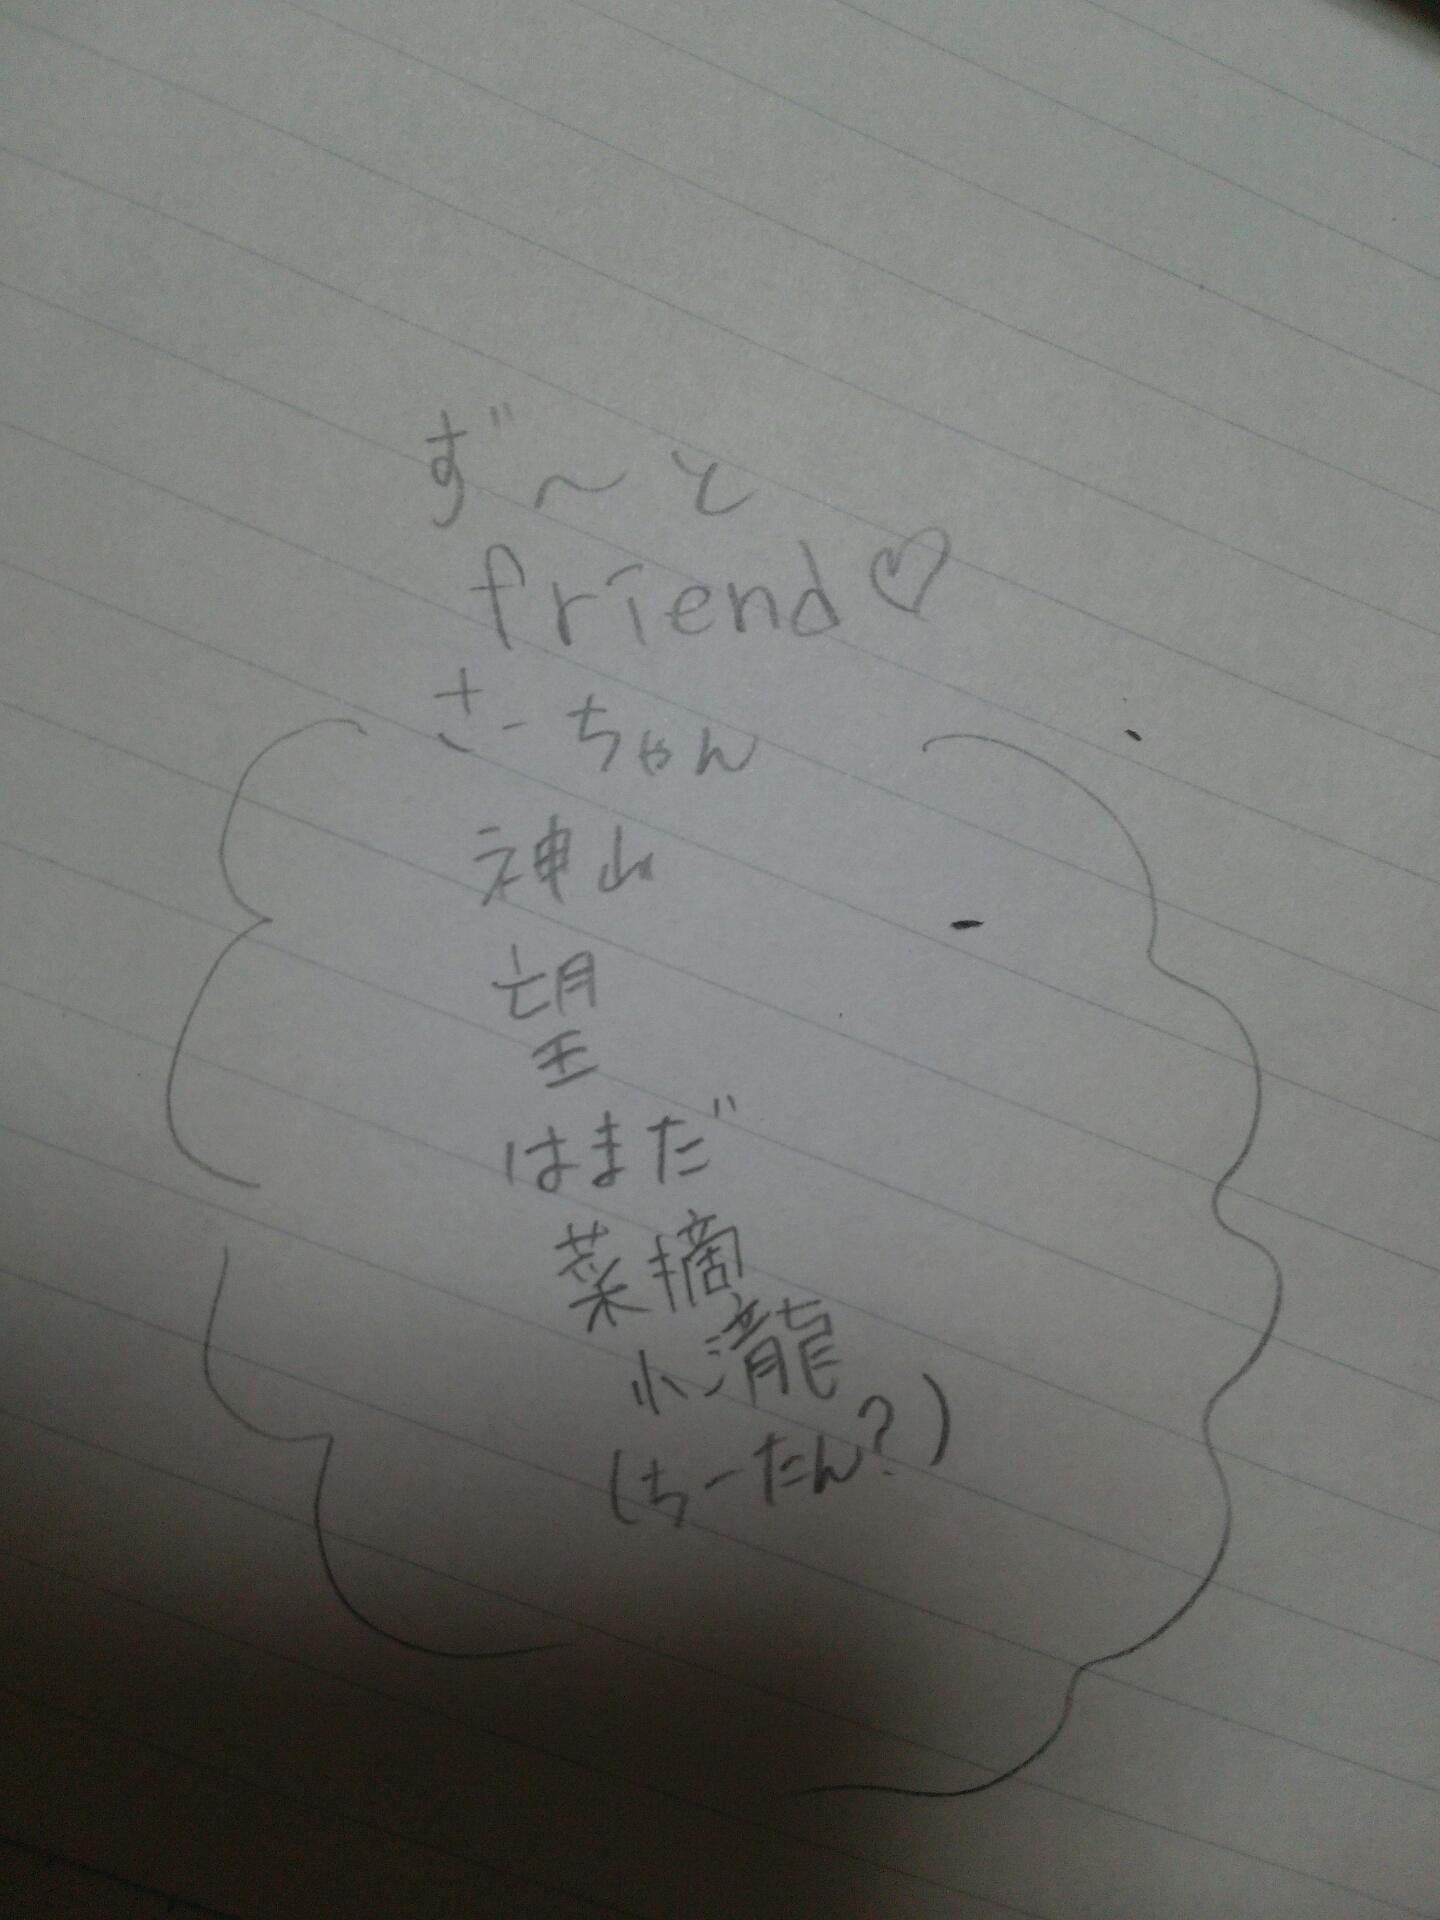 ず〜と
friend♡
さーちゃん
神山
望
はまだ
菜摘
小瀧
(ちーたん?)